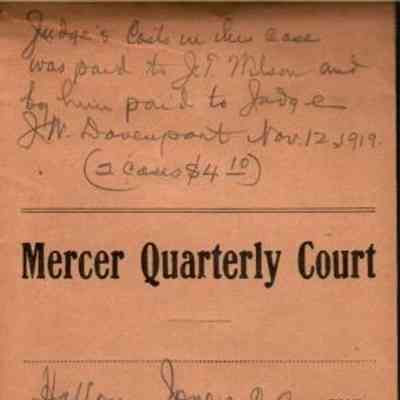 Judge's Costs in this case
was paid to J.T. Wilson and
by him paid to Judge
J.W. Davenport Nov. 12, 1919.
(2 cases $4 10)
Mercer Quarterly Court